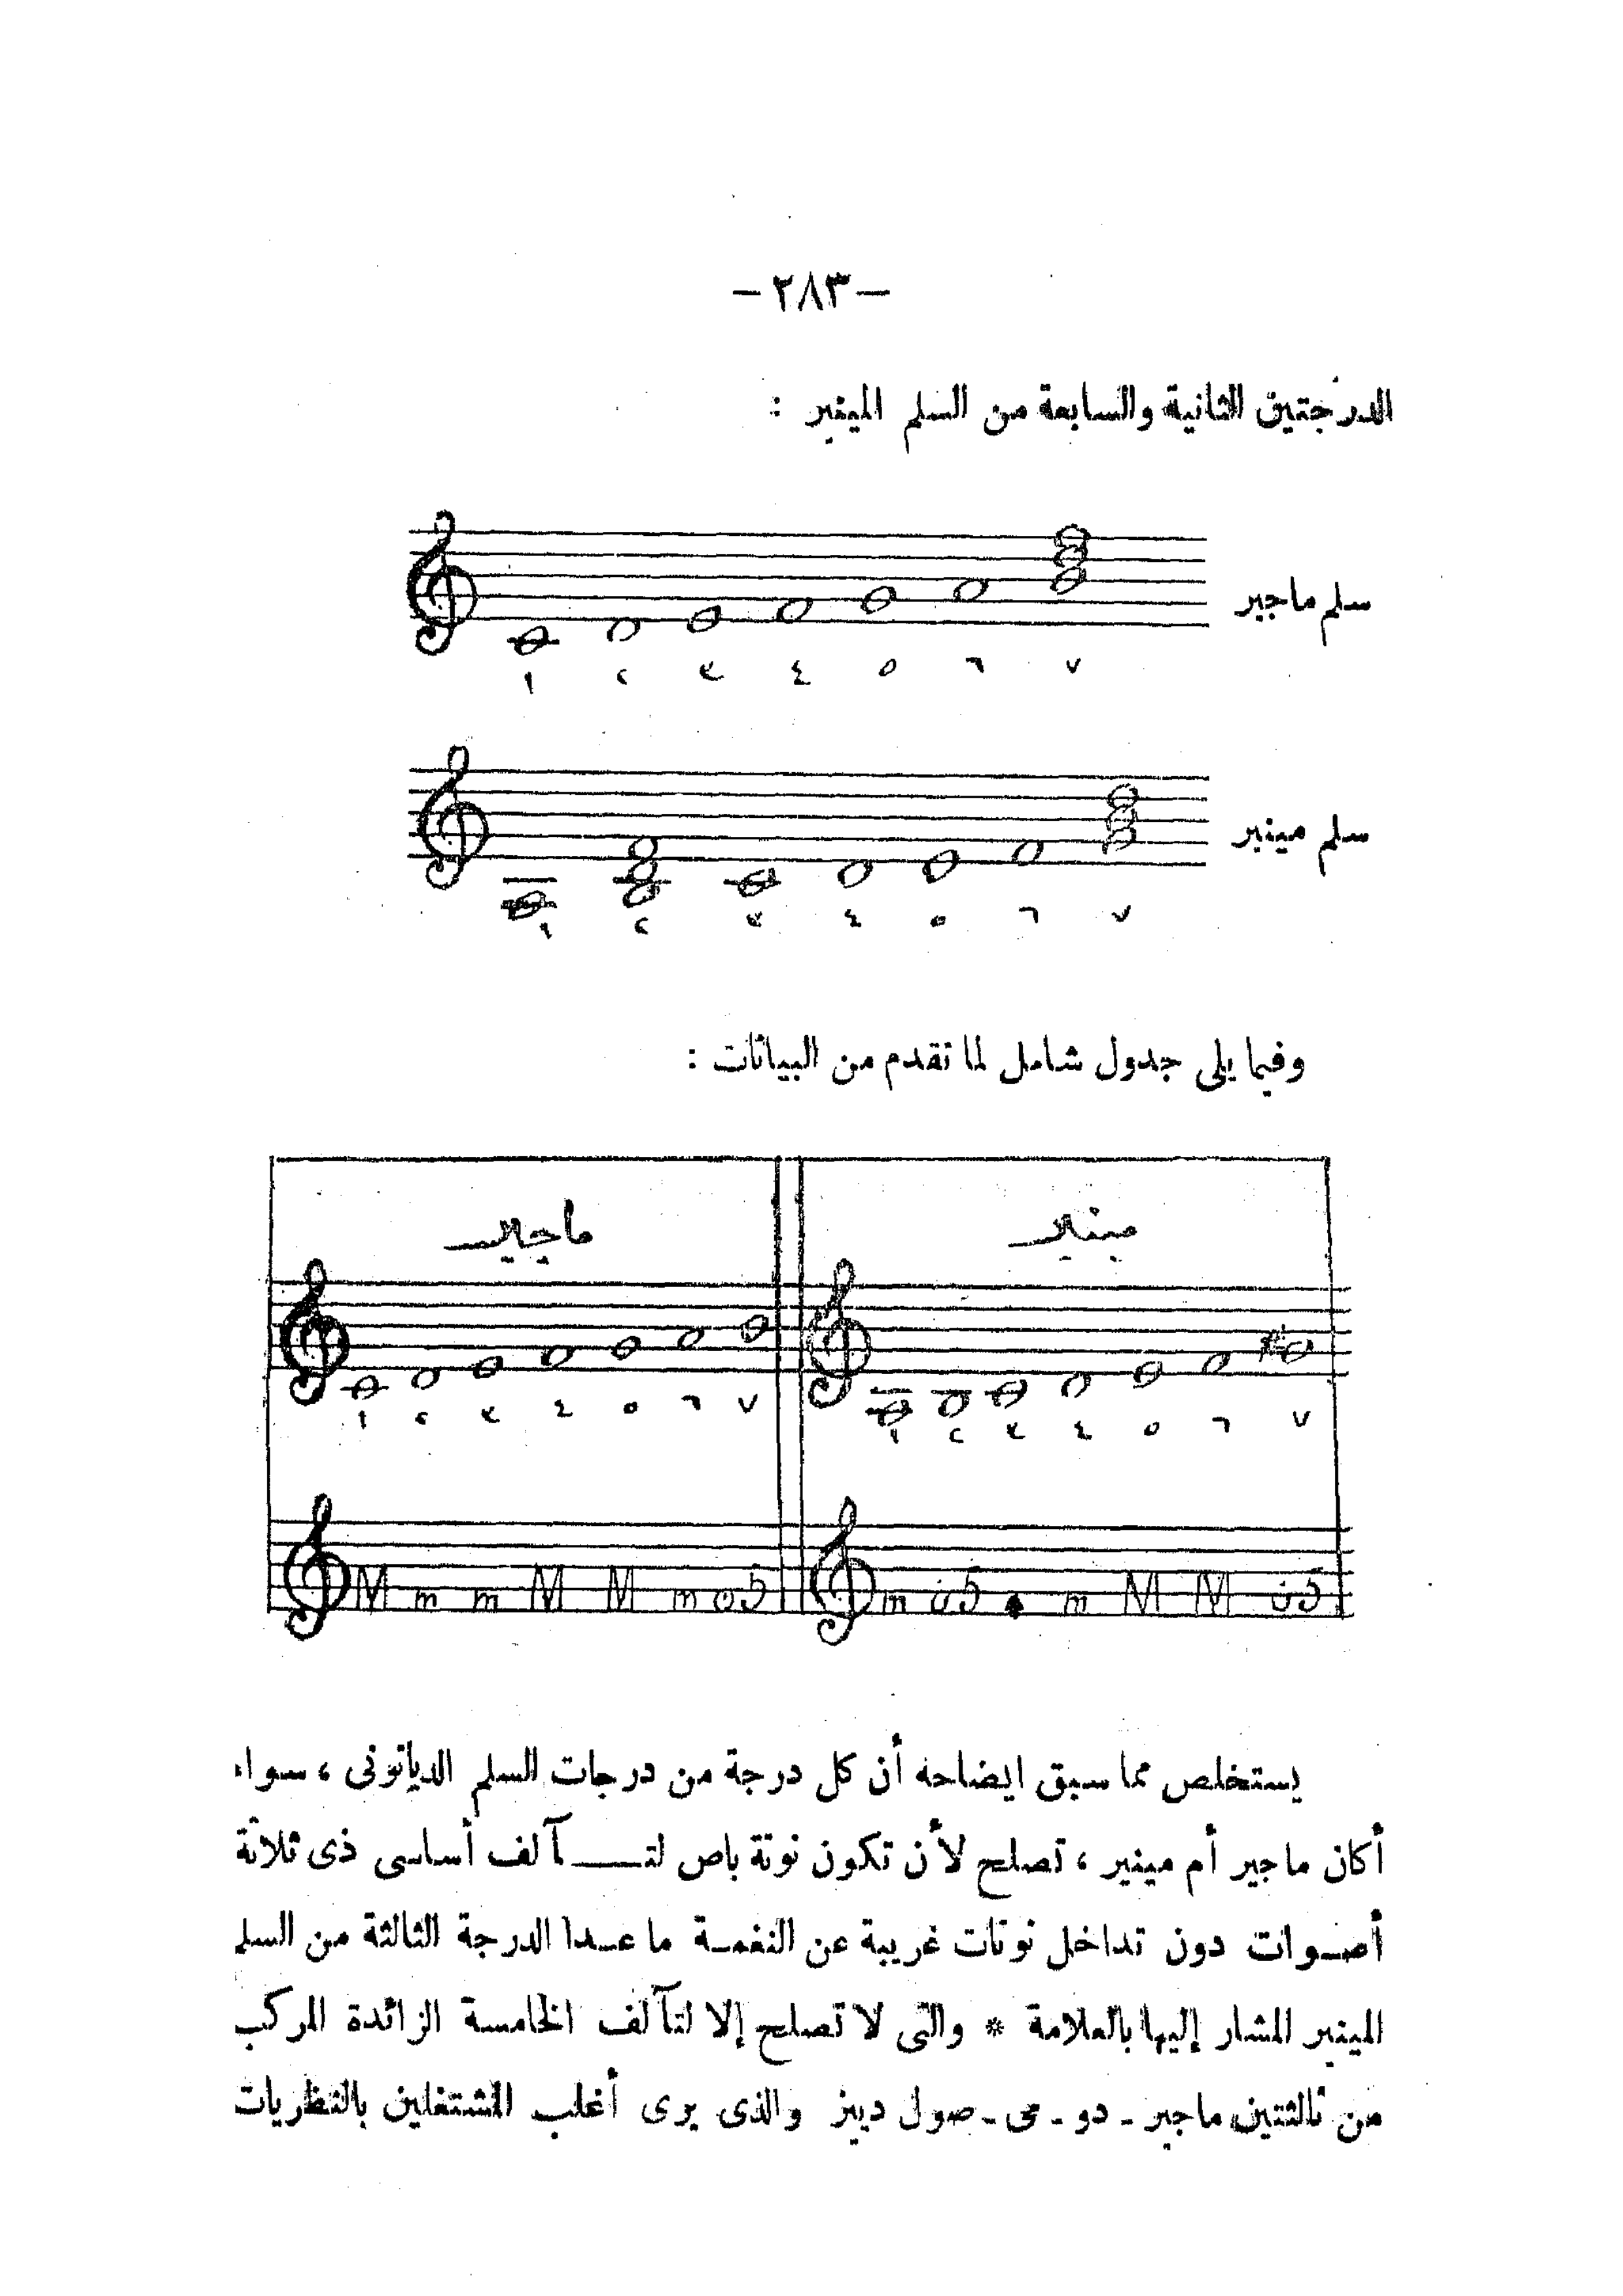 - ٢٨٣ -
الدرجتين الثانية والسابعة من السلم المينير :
سلم ماجير
١ ٢ ٣ ٤ ٥ ٦ ٧
سلم مينير
١ ٢ ٣ ٤ ٥ ٦ ٧
وفيما يلى جدول شامل لما تقدم من البيانات :
ماجير
مينير
١ ٢ ٣ ٤ ٥ ٦ ٧
١ ٢ ٣ ٤ ٥ ٦ ٧
M m m M M m ن5
m ن5 m M M ن5
يستخلص مما سبق ايضاحه أن كل درجة من درجات السلم الدياتونى ، سواء
أكان ماجير أم مينير ، تصلح لأن تكون نوتة باص لتـــآلف أساسى ذى ثلاثة
أصـوات دون تداخل نوتات غريبة عن النغمـة ما عـدا الدرجة الثالثة من السلم
المينير المشار إليها بالعلامة * والتى لا تصلح إلا لتآلف الخامسة الزائدة المركب
من ثالثتين ماجير - دو - مى - صول دييز والذى يرى أغلب المشتغلين بالنظريات